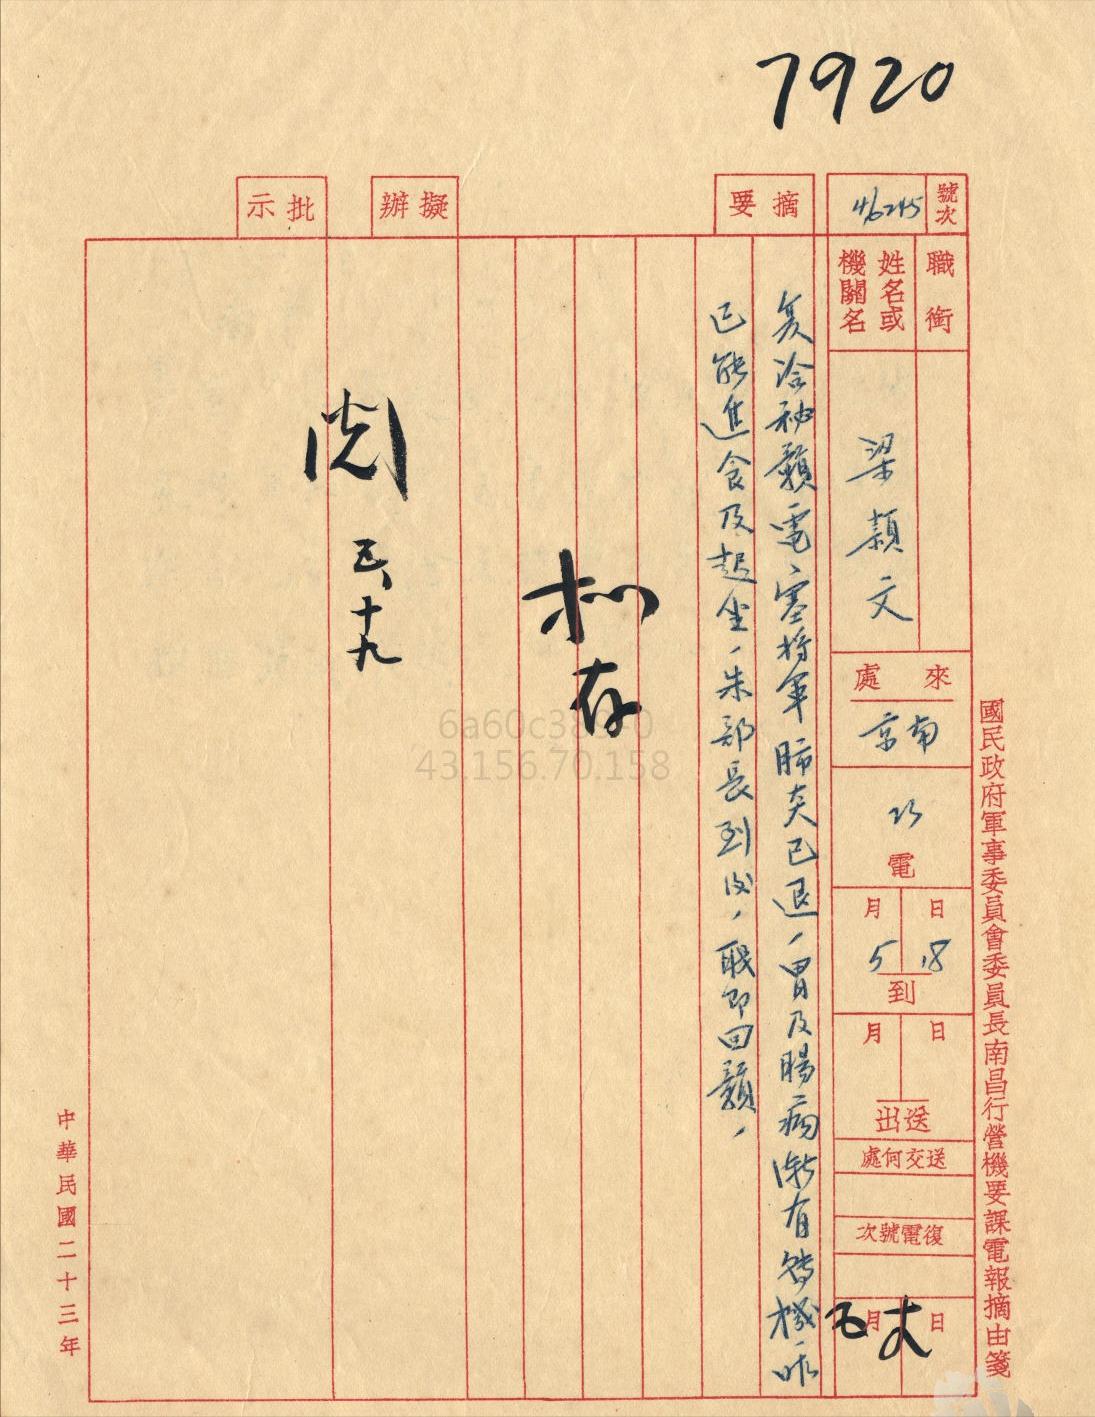 7920
國民政府軍事委員會委員長南昌行營機要課電報摘由箋
號次
46245
職銜
姓名或
機關名
梁穎文
來處
南京
巧
電
月 日
5 18
到
月 日
送出
送交何處
復電號次
月 日
五
摘要
冷秘贛電、塞將軍肺炎已退、胃及腸病漸有轉機昨
已能進食及起坐、朱部長到後、職即回贛、
擬辦
存
批示
閱
五、十九
中華民國二十三年
6a60c389-0
43.156.70.158